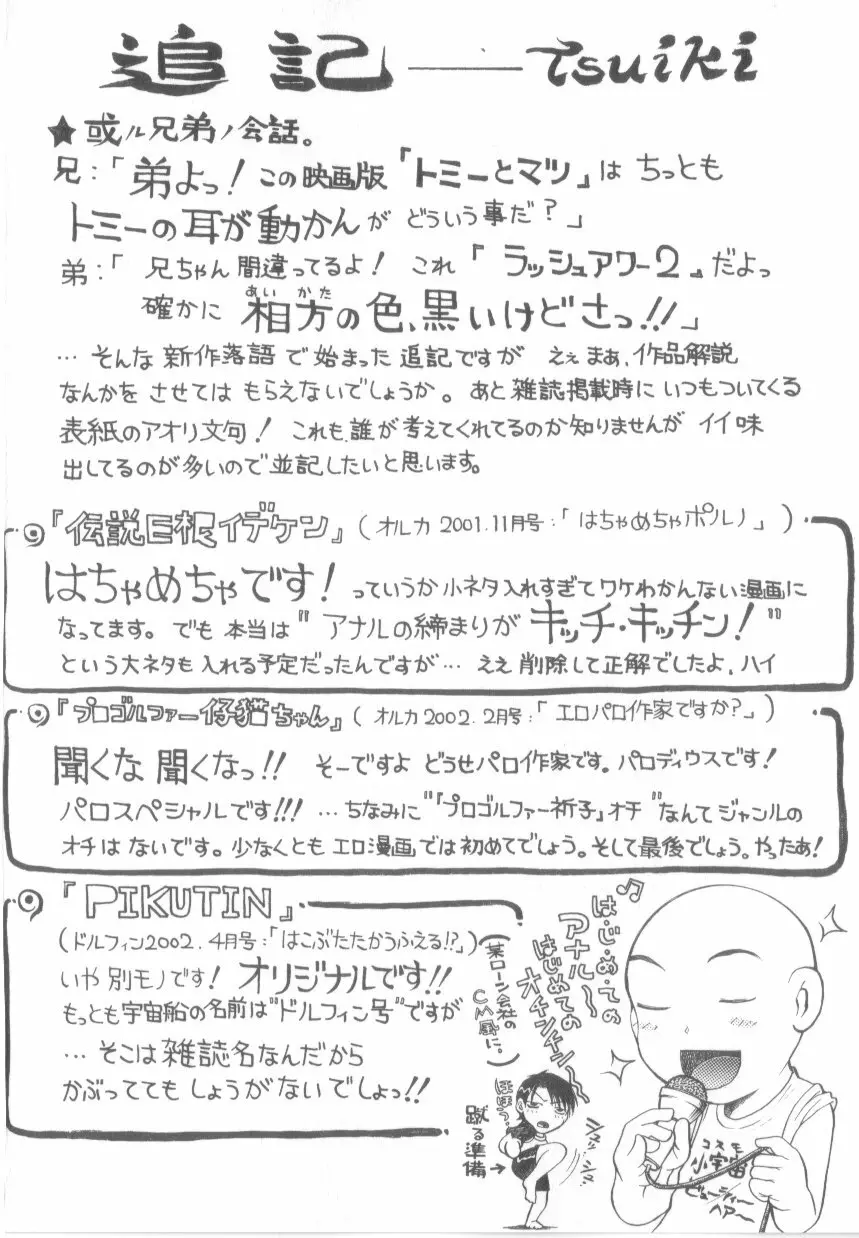 追記——tsuiki
★或ル兄弟ノ会話。
兄:「弟よっ!この映画版『トミーとマツ』はちっとも
トミーの耳が動かんがどういう事だ?」
弟:「兄ちゃん間違ってるよ!これ『ラッシュアワー2』だよっ
確かに相方の色、黒いけどさっ!!」
あいかた
…そんな新作落語で始まった追記ですがえぇまぁ、作品解説
なんかをさせてはもらえないでしょうか。あと雑誌掲載時にいつもついてくる
表紙のアオリ文句!これも誰が考えてくれてるのか知りませんがイイ味
出してるのが多いので並記したいと思います。
『伝説巨根イデケン』(オルカ2001.11月号:「はちゃめちゃポルノ」)
はちゃめちゃです!っていうか小ネタ入れすぎてワケわかんない漫画に
なってます。でも本当は"アナルの締まりがキッチ・キッチン!"
という大ネタも入れる予定だったんですが…ええ削除して正解でしたよ、ハイ
『プロゴルファー仔猫ちゃん』(オルカ2002.2月号:「エロパロ作家ですか?」)
聞くな聞くなっ!!そーですよどうせパロ作家です。パロディウスです!
パロスペシャルです!!!…ちなみに"『プロゴルファー祈子』オチ"なんてジャンルの
オチはないです。少なくともエロ漫画では初めてでしょう。そして最後でしょう。やったぁ!
『PIKUTIN』
(ドルフィン2002.4月号:「はこぶたたかうふえる!?」)
いや別モノです!オリジナルです!!
もっとも宇宙船の名前は"ドルフィン号"ですが
…そこは雑誌名なんだから
かぶっててもしょうがないでしょっ!!
♪は・じ・め・ての
アナル〜
はじめての
オチンチン〜
(某ローン会社の
CM風に。)
ほほう。
蹴る準備→
コスモ
小宇宙
ビューティー
ヘアー